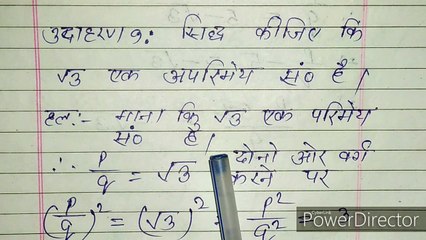 उदाहरण 9: सिद्ध कीजिए कि
√3 एक अपरिमेय सं० है।
हलः- माना कि √3 एक परिमेय
सं० है।
∴ p/q = √3 दोनो ओर वर्ग
करने पर
(p/q)² = (√3)² = p²/q² = 3
PowerDirector